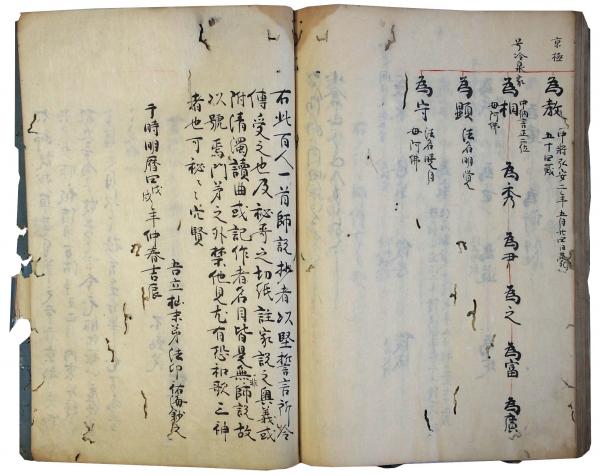 京極
為教 中将 弘安二年五月廿四日薨
五十四歳
号冷泉家
為相 中納言正二位
母阿佛
為秀 為尹 為之 為富 為廣
為顕 法名明覚
為守 法名暁月
母阿佛
右此百人一首師説抄者以堅誓言所令
傳受之也及秘哥之切紙註家説之奥義或
附清濁讀曲或記作者名目皆是無師説故
以號焉門弟之外禁他見尤有恐和歌三神
者也可秘々々穴賢
于時明暦四戊戌年仲春吉辰
法印祐海